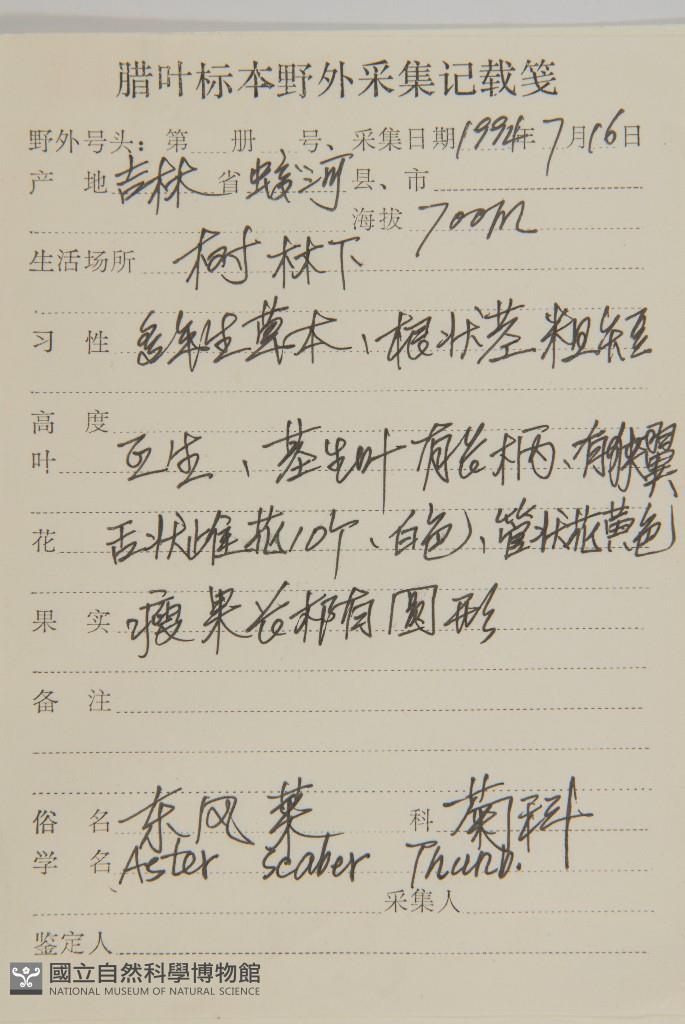 腊叶标本野外采集记载笺
野外号头：第 册 号、采集日期1994年7月16日
产 地 吉林 省 蛟河 县、市
海拔 700m
生活场所 树林下
习 性 多年生草本、根状茎粗短
高 度
叶 互生、基生叶有长柄、有狭翼
花 舌状雌花10个、白色、管状花黄色
果 实 瘦果 圆形
备 注
俗 名 东风菜 科 菊科
学 名 Aster scaber Thunb.
采集人
鉴定人
國立自然科學博物館
NATIONAL MUSEUM OF NATURAL SCIENCE